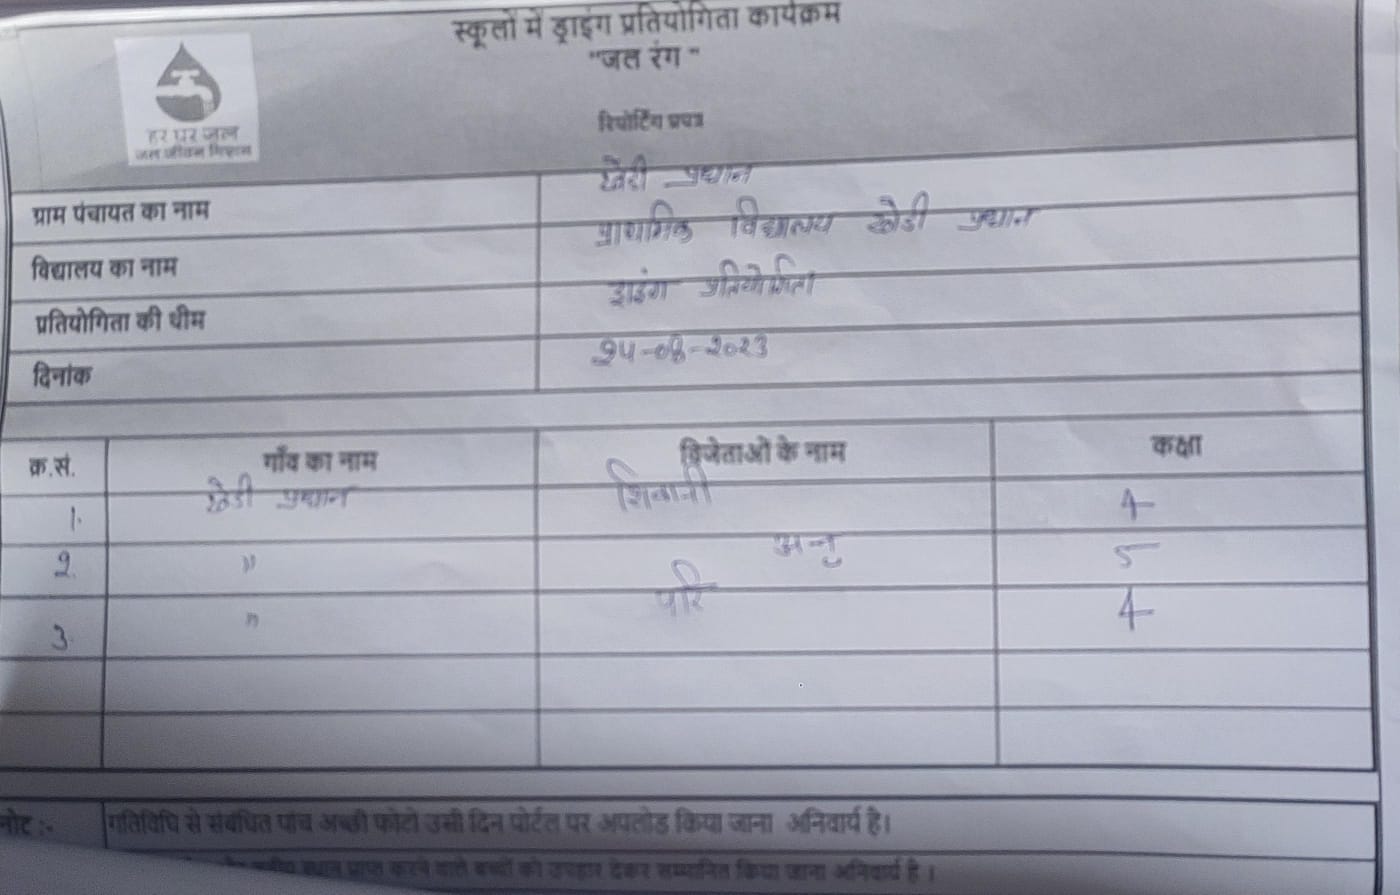 स्कूलों में ड्राइंग प्रतियोगिता कार्यक्रम
"जल रंग"
हर घर जल
जल जीवन मिशन
रिपोर्टिंग प्रपत्र
ग्राम पंचायत का नाम खेडी प्रधान
विद्यालय का नाम प्राथमिक विद्यालय खेडी प्रधान
प्रतियोगिता की थीम ड्राइंग प्रतियोगिता
दिनांक २५-०8-२०२3
क्र.सं. गाँव का नाम विजेताओं के नाम कक्षा
1. खेडी प्रधान शिवानी 4
2. " अनु 5
3. " परि 4
नोट :- गतिविधि से संबंधित पांच अच्छी फोटो उसी दिन पोर्टल पर अपलोड किया जाना अनिवार्य है।
स्थान प्राप्त करने वाले बच्चों को उपहार देकर सम्मानित किया जाना अनिवार्य है।